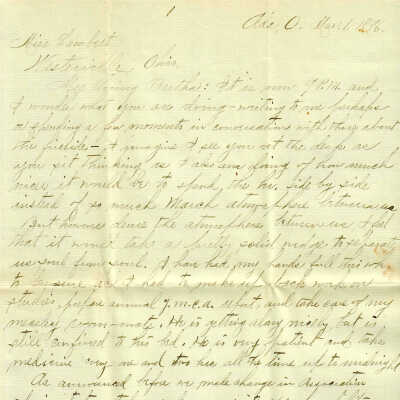 1
Ada, O. Mar 1. 1896.
Miss Lambert
Westerville, Ohio.
My Loving Bertha: It is now 7 P.M. and
I wonder what you are doing - writing to me perhaps
or spending a few moments in conversation with those about
the fireside - I imagine I see you at the desk as
you sit thinking as I also am doing of how much
nicer it would be to spend the hr. side by side
instead of so much March atmosphere between us
But however dense the atmosphere between us I feel
that it would take a pretty solid wedge to separate
us soul from soul. I have had my hands full this
to be sure as I had to make up back work on
studies, prepare annual Y.M.C.A. report, and take care of my
measley room-mate. He is getting along nicely but is
still confined to his bed. He is very patient and takes
medicine every one and two hrs all the time up to midnight
As announced before we made change in Association